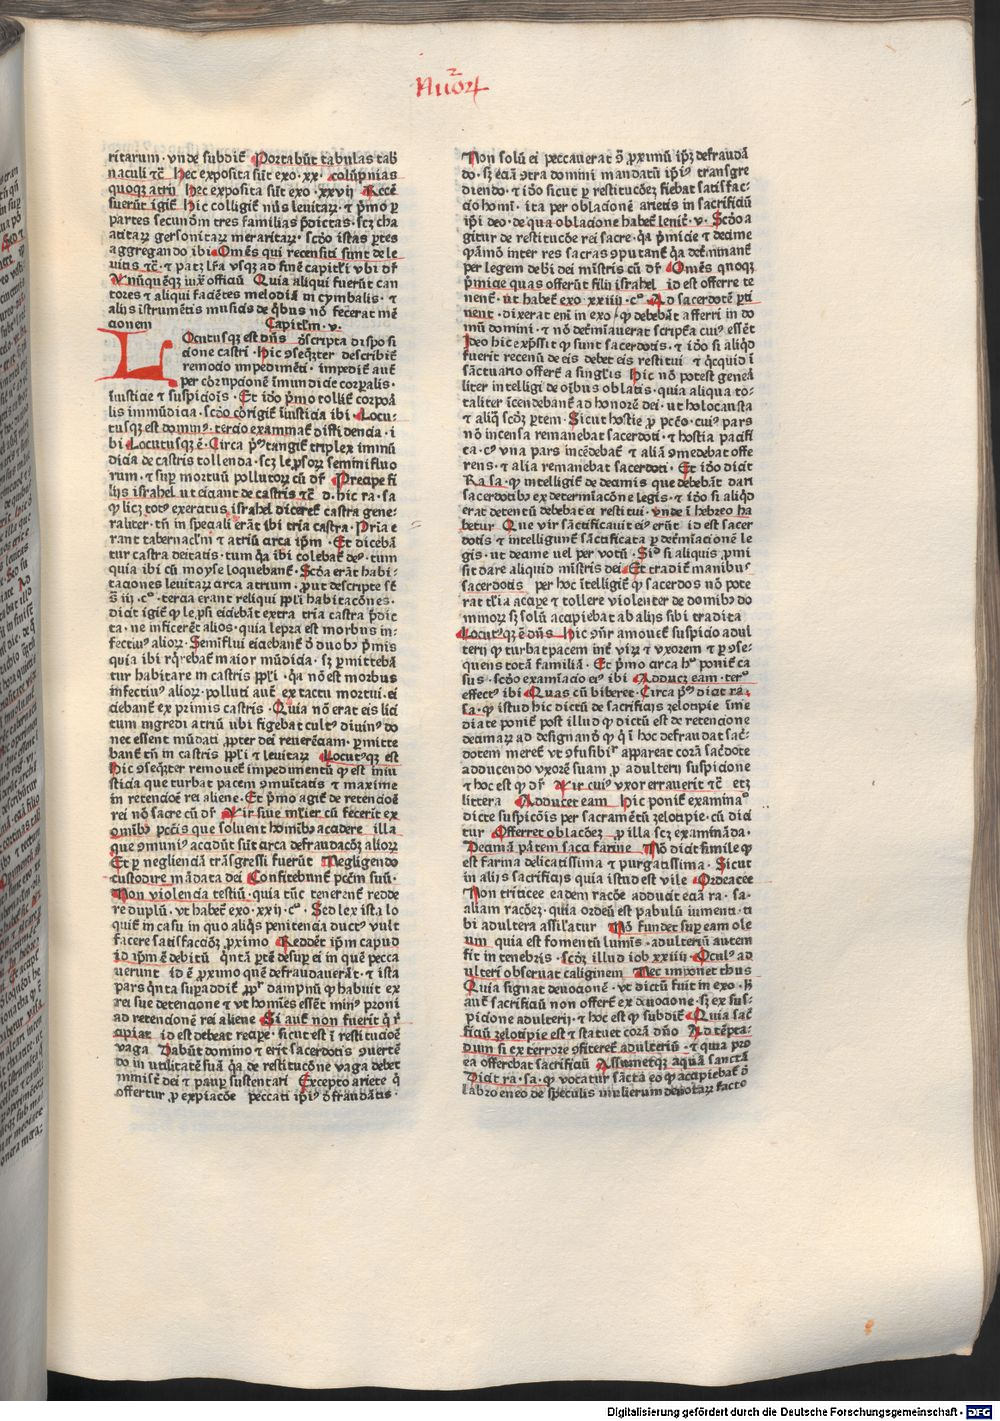 ritarum · vnde subdit̄ Portabūt tabulas tab̄
naculi ⁊c̄ Hec exposita sūt exo · xx · colūpnias
quoqꝫ atrii Hec exposita sūt exo · xxvij Recē
fuerūt igit̄ Hic colligit̄ nūs leuitaꝝ · ⁊ pͥmo ꝑ
partes secundm̄ tres familias p̄dictas · scꝫ cha
atitaꝝ gersonitaꝝ meraritaꝝ · scd̄o istas ꝑtes
aggregando ibi Omēs qui recensiti sunt de le
uitis ⁊c̄ · ⁊ patꝫ lr̄a vsqꝫ ad finē capitl̓i vbi dr̄
Vnūquēqꝫ iuxͣ officiū Quia aliqui fuerūt can
tores ⁊ aliqui faciētes melodiā in cymbalis · ⁊
alijs istrumētis musicis de qͥbus nō fecerat mē
cionem Capitl̓m · v ·
Locutusqꝫ est dn̄s descripta dispo si
cione castri · Hic ꝯseqn̄ter describit̄
remocio impedimēti · impedit̄ aut̄
per corrupcionē īmundicie corꝑalis ·
iniusticie ⁊ suspicióis · Et ido̓ pͥmo tollit̄ corpoa
lis immūdicia · scd̄o corrigit̄ iusticia ibi · Locu-
tusqꝫ est dominꝰ · tercio examinat̄ diffidencia · i
bi Locutusqꝫ ē · Circa pͥmū tangit̄ triplex immū
dicia de castris tollenda · scꝫ leprosoꝝ seminifluo
rum · ⁊ suꝑ mortuū pollutoꝝ cū dr̄ Precipe fi
lijs israhel ut eiciant de castris ⁊c̄ D · hic ra · sa
ꝙ licꝫ totꝰ exercitus israhel diceret̄ castra gene-
raliter · tn̄ in speciali erāt ibi tria castra · Pria e
rant tabernacl̓m ⁊ atriū circa ip̄m · Et dicebā
tur castra deitatis · tum qͥa ibi colebat̄ deꝰ · tum
quia ibi cū moyse loquebant̄ · Scd̄a erāt habi-
taciones leuitaꝝ circa atrium · ꝓut descripte sūt
s̄ iij · cͦ · tercia erant reliqui ppl̓i habitacōnes ·
Dicit igit̄ ꝙ leꝑsi eiciebāt̄ extra tria castra p̄dic
ta · ne inficerēt alios · quia lepra est morbus in-
fectiuꝰ alioꝝ · Semīflui eiciebant̄ de duobꝰ pͥmis
quia ibi rꝗͥrebat̄ maior mūdicia · sꝫ ꝑmittebā
tur habitare in castris ppl̓i · qͥa nō est morbus
infectiuꝰ alioꝝ · polluti aut̄ ex tactu mortui · ei
ciebant̄ ex primis castris · Quia nō erat eis lici
tum ingredi atriū ubi figebat̄ cultꝰ diuinꝰ do
nec essent mūdati ꝓpter dei reuerēciam · ꝑmitte
bant̄ tn̄ in castris ppl̓i ⁊ leuitaꝝ Locutꝰqꝫ est
Hic ꝯseqn̄ter remouet̄ impedimentū ꝙ est iniu
sticia que turbat pacem ꝯmuitatis ⁊ maxime
in retencioē rei aliene · Et pͥmo agit̄ de retencioē
rei nō sacre cū dr̄ Vir siue ml̓ier cū fecerit ex
omībꝰ pcc̄is que soluent homībꝰ accidere illa
que ꝯmuniꝰ accidūt sūt circa defraudacōꝫ alioꝝ
Et ꝑ negligenciā trāsgressi fuerūt Negligendo
custodire mādata dei Confitebunt̄ pcc̄m suū ·
Non violencia testiū · quia tūc tenerent̄ redde
re duplū · vt habet̄ exo · xxij · cͦ · Sed lex ista lo
quit̄ in casu in quo aliqs penitencia ductꝰ vult
facere satisfaccōꝫ proximo Reddēt ip̄m capud
id ip̄m ē debitū qn̄tā ꝑtē desuꝑ ei in quē pecca
uerunt id ē proximo quē defraudauerāt · ⁊ ista
pars qn̄ta supaddit̄ ꝓpͬ dampnū ꝙ habuit ex
rei sue detencione ⁊ vt homīes essēt minꝰ proni
ad retencionē rei aliene Si aūt non fuerit qͥ r̄
cipiat id est debeat recipe · sicut est ī restitucioē
vaga Dabūt domino ⁊ erit sacerdotis ꝯuertē
do in utilitatē suā qͥa de restitucōne vaga debet
mīnistͥ dei ⁊ paupꝰ sustentari Excepto ariete qͥ
offertur ꝓ expiacōe peccati ip̄iꝰ defraudātis ·
Non solū ei peccauerat s̄ proximū ip̄ꝫ defraudā
do · sꝫ eciā ꝯtra domini mandatū ip̄iꝰ transgre
diendo · ⁊ ido̓ sicut ꝑ restitucōeꝫ fiebat satisfac-
cio homī · ita per oblacionē arietis in sacrificiū
ip̄i deo · de qua oblacione habet̄ leuit̄ · v · Scd̄o a
gitur de restitucōe rei sacre · qͥa pͥmicie ⁊ decime
qͣdāmō inter res sacras ꝯputant̄ qͥa det̓minant̄
per legem debi dei mīstris cū dr̄ Omēs quoqꝫ
pͥmicie quas offerūt filij israhel id est offerre te
nent̄ · ut habet̄ exo xxiiij · cͦ · Ad sacerdotē ꝑti
nent · dixerat eni in exo / ꝙ debebāt afferri in do
mū domini · ⁊ nō det̓miauerat scriptͣa cuiꝰ essēt
Ideo hic exp̄ssit ꝙ sunt sacerdotis · ⁊ ido̓ si aliqͥd
fuerit recentū de eis debet eis restitui ⁊ qͥcquid ī
sāctuario offert̄ a singl̓is Hic nō potest genea
liter intelligi de oībus oblatis · quia aliqua to-
taliter īcendebant̄ ad honorē dei · ut holocausta
⁊ aliqͣ scd̄ꝫ ꝑtem · Sicut hostie ꝓ pcc̄o · cuiꝰ pars
nō incensa remanebat sacerdoti · ⁊ hostia pacifi
ca · cꝰ vna pars incēdebat̄ ⁊ aliā ꝯmedebat offe
rens · ⁊ alia remanebat sacerdoti · Et ido̓ dicit
Ra · sa · ꝙ intelligit̄ de decimis que debebāt̄ dari
sacerdotibꝰ ex determīacōne legis · ⁊ ido̓ si aliqͥd
erat detentū debebat ei restitui · vnde ī hebreo ha
betur Que vir sāctificauit eiꝰ erūt id est sacer
dotis ⁊ intelligunt̄ sāctificata ꝑ det̓mīacionē le
gis · ut decime uel per votū · Siͦ si aliquis ꝓmi
sit dare aliquid mīstris dei · Et tradit̄ manibus
sacerdotis per hoc ītelligit̄ ꝙ sacerdos nō pote
rat tl̓ia accipe ⁊ tollere violenter de domibꝰ do
minoꝝ sꝫ solū accipiebat ab alijs sibi tradita
Locutꝰqꝫ ē dn̄s · Hic ꝯn̄r amouet̄ suspicio adul
terij ꝙ turbat pacem int̄ viꝝ ⁊ vxorem ⁊ ꝑ ꝯse-
quens totā familiā · Et pͥmo circa hͦ ponit̄ ca
sus · scd̄o examīacio eiꝰ ibi Adducꝫ eam · ter
effectꝰ ibi Quas cū biberet · Circa pͥmū dicit ra ·
sa · ꝙ istud hic dictū de sacrificijs zelotipie īme
diate ponit̄ post illud ꝙ dictū est de retencione
decimaꝝ ad designandū ꝙ qͥ ī hoc defraudat sac̄
dotem meret̄ vt ꝯfusibilͬ appareat corā sac̄dote
adducendo vxorē suam ꝓ adulterij suspicione
⁊ hoc est ꝙ dr̄ Vir cuiꝰ vxor errauerit ⁊c̄ etꝫ
littera Adducet eam Hic ponit̄ examinaͦ
dicte suspicōis per sacramētū zelotipie · cū dici
tur Offerret oblacōeꝫ ꝓ illa scꝫ examīnāda ·
Decimā pͣtem sata farine Nō dicit simile qͥ
est farina delicatissima ⁊ purgatissima · Sicut
in alijs sacrificijs quia istud est vile Ordeacee
Non triticee eadem racōe adducit eciā ra · sa ·
aliam racōeꝫ · quia ordeū est pabulū iumenti · ti
bi adultera assil̓atur Nō fundet suꝑ eam ole
um quia est fomentū lumīs · adulteriū autem
fit in tenebris · scd̄ꝫ illud iob xxiiij Oculꝰ ad
ulteri obseruat caliginem Nec imponet thus
Quia signat deuocionē · vt dictū fuit in exo · hͦ
aut̄ sacrificiū non offert̄ ex deuocione · sꝫ ex sus-
picione adulterij · ⁊ hoc est ꝙ subdit̄ Quia sac̄
ficiū zelotipie est ⁊ statuet corā dn̄o Ad tēpta-
dum si ex terrore ꝯfiteret̄ adulteriū · ⁊ quia pro
ea offerebat sacrificiū Assumetqꝫ aquā sanctā
Dicit ra · sa · ꝙ vocatur sāctā eo ꝙ accipiebat̄ de
labro eneo de speculis mulierum deuotaꝝ facto
Digitalisierung gefördert durch die Deutsche Forschungsgemeinschaft - DFG